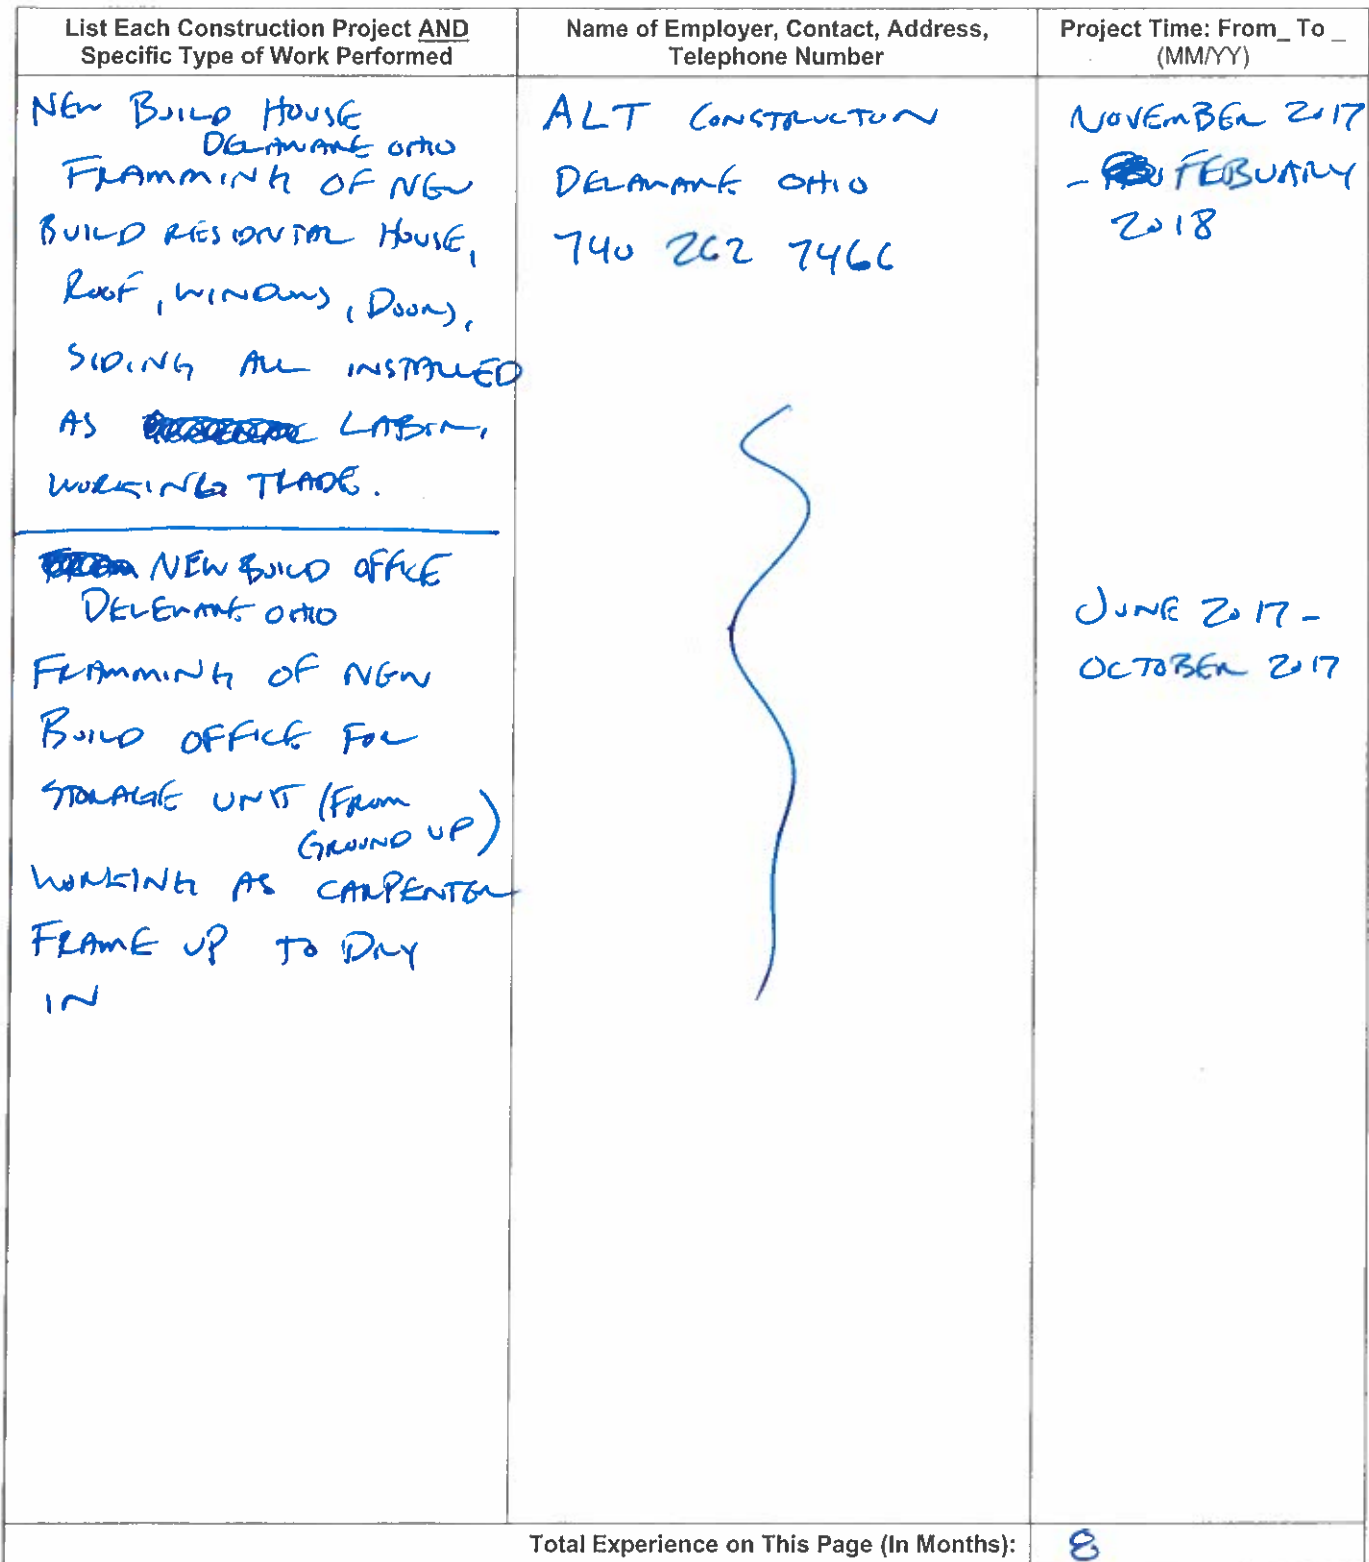 List Each Construction Project AND
Specific Type of Work Performed
Name of Employer, Contact, Address,
Telephone Number
Project Time: From_ To _
(MM/YY)
NEW BUILD HOUSE
DELAWARE OHIO
FRAMMING OF NEW
BUILD RESIDNTIAL HOUSE,
ROOF, WINDOWS, DOORS,
SIDING ALL INSTALLED
AS LABOR,
WORKING TRADE.
ALT CONSTRUCTON
DELAWARE OHIO
740 262 7466
NOVEMBER 2017
- FEBUARY
2018
NEW BUILD OFFICE
DELEWARE OHIO
FRAMMING OF NEW
BUILD OFFICE FOR
STORAGE UNIT (FROM
GROUND UP)
WORKING AS CARPENTER
FRAME UP TO DRY
IN
JUNE 2017 -
OCTOBER 2017
Total Experience on This Page (In Months):
8